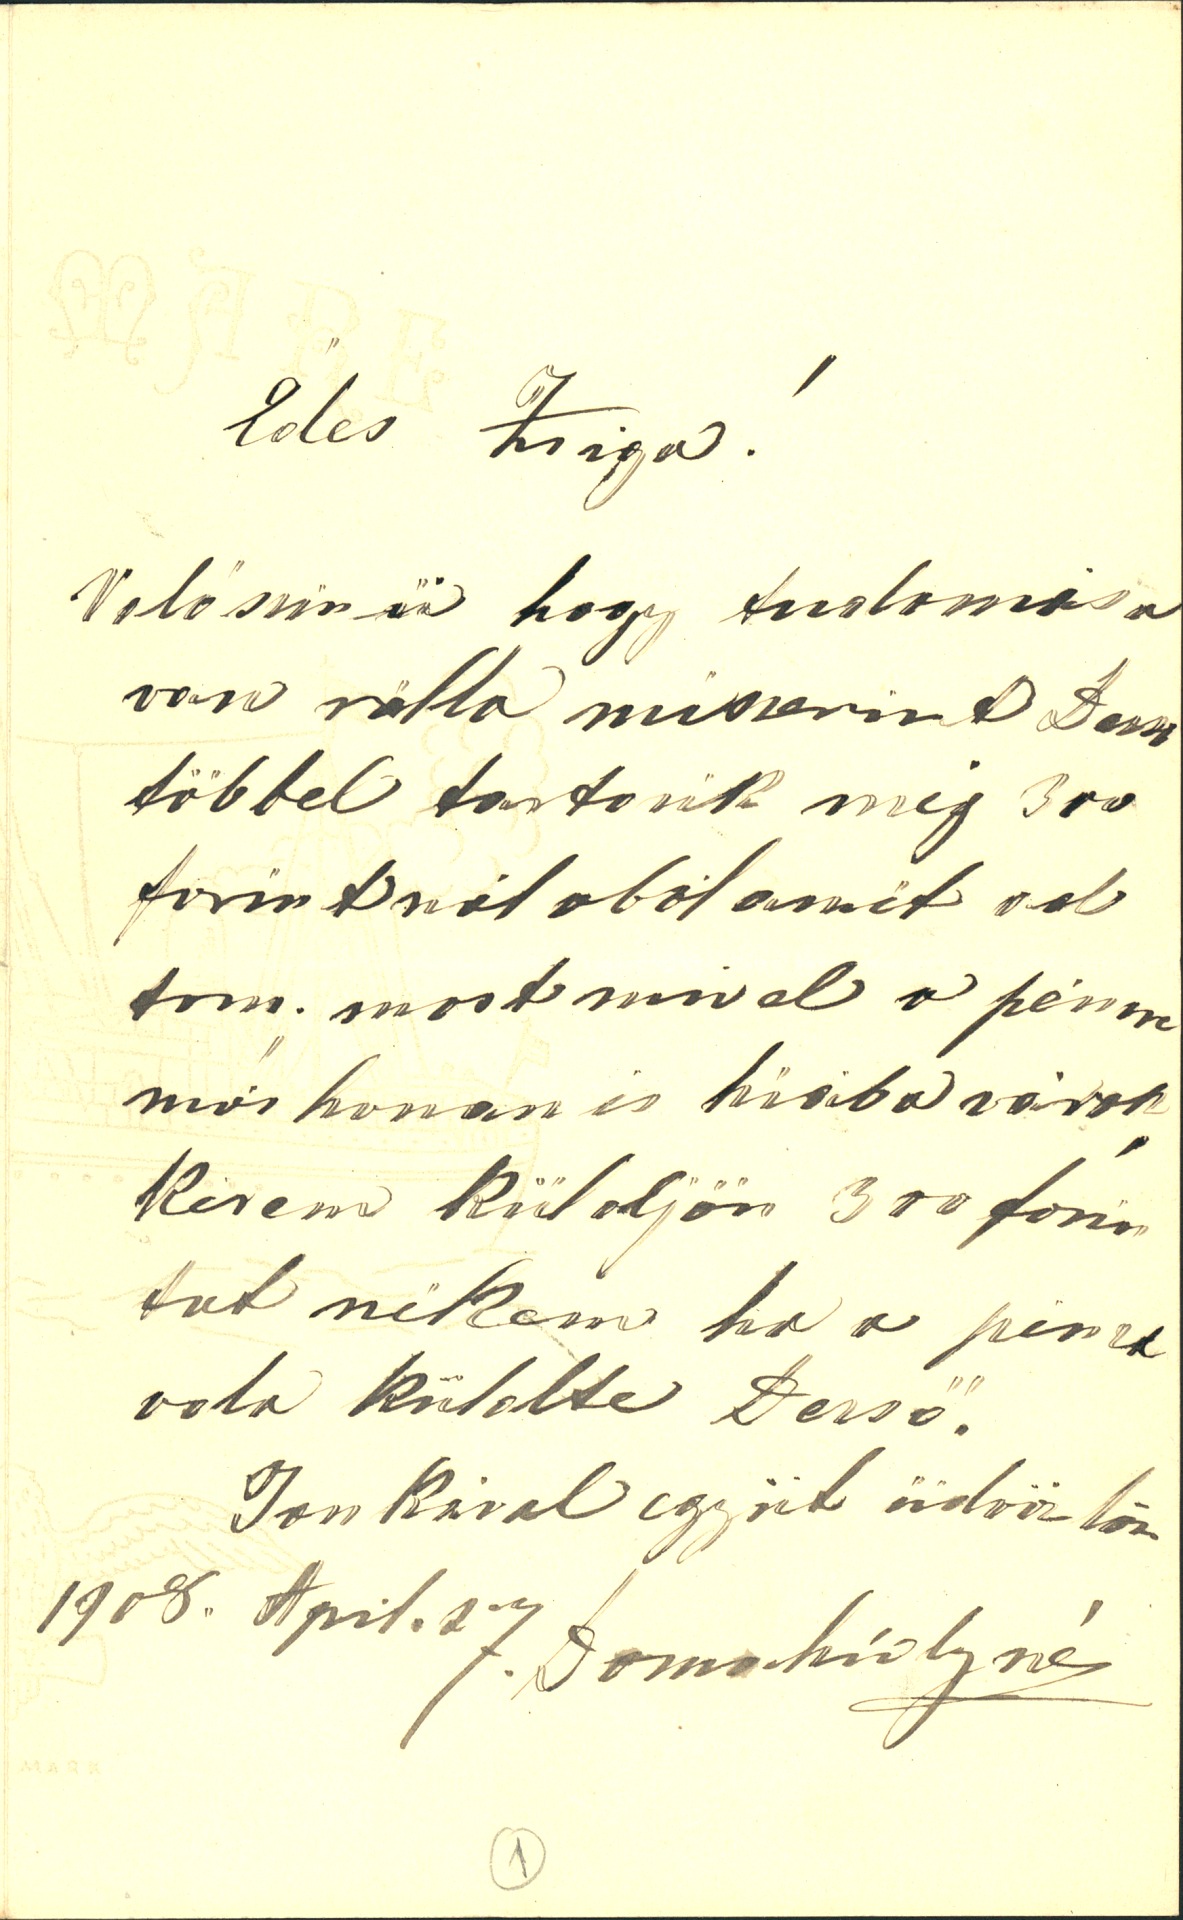 Édes Zsiga!
Valószinüü hogy tudomása
van rálla miszerint Dezső
többel tartozik még 300
forintnál abból amit ad
tam. most mivel a pénzre
más honan is hiába várok,
Kérem küldjön 300 forin
tot nékem ha a pénzt
oda küldte Dezső.
Jankával együt üdvözlöm
1908. April. 27.
Domahidyné
1